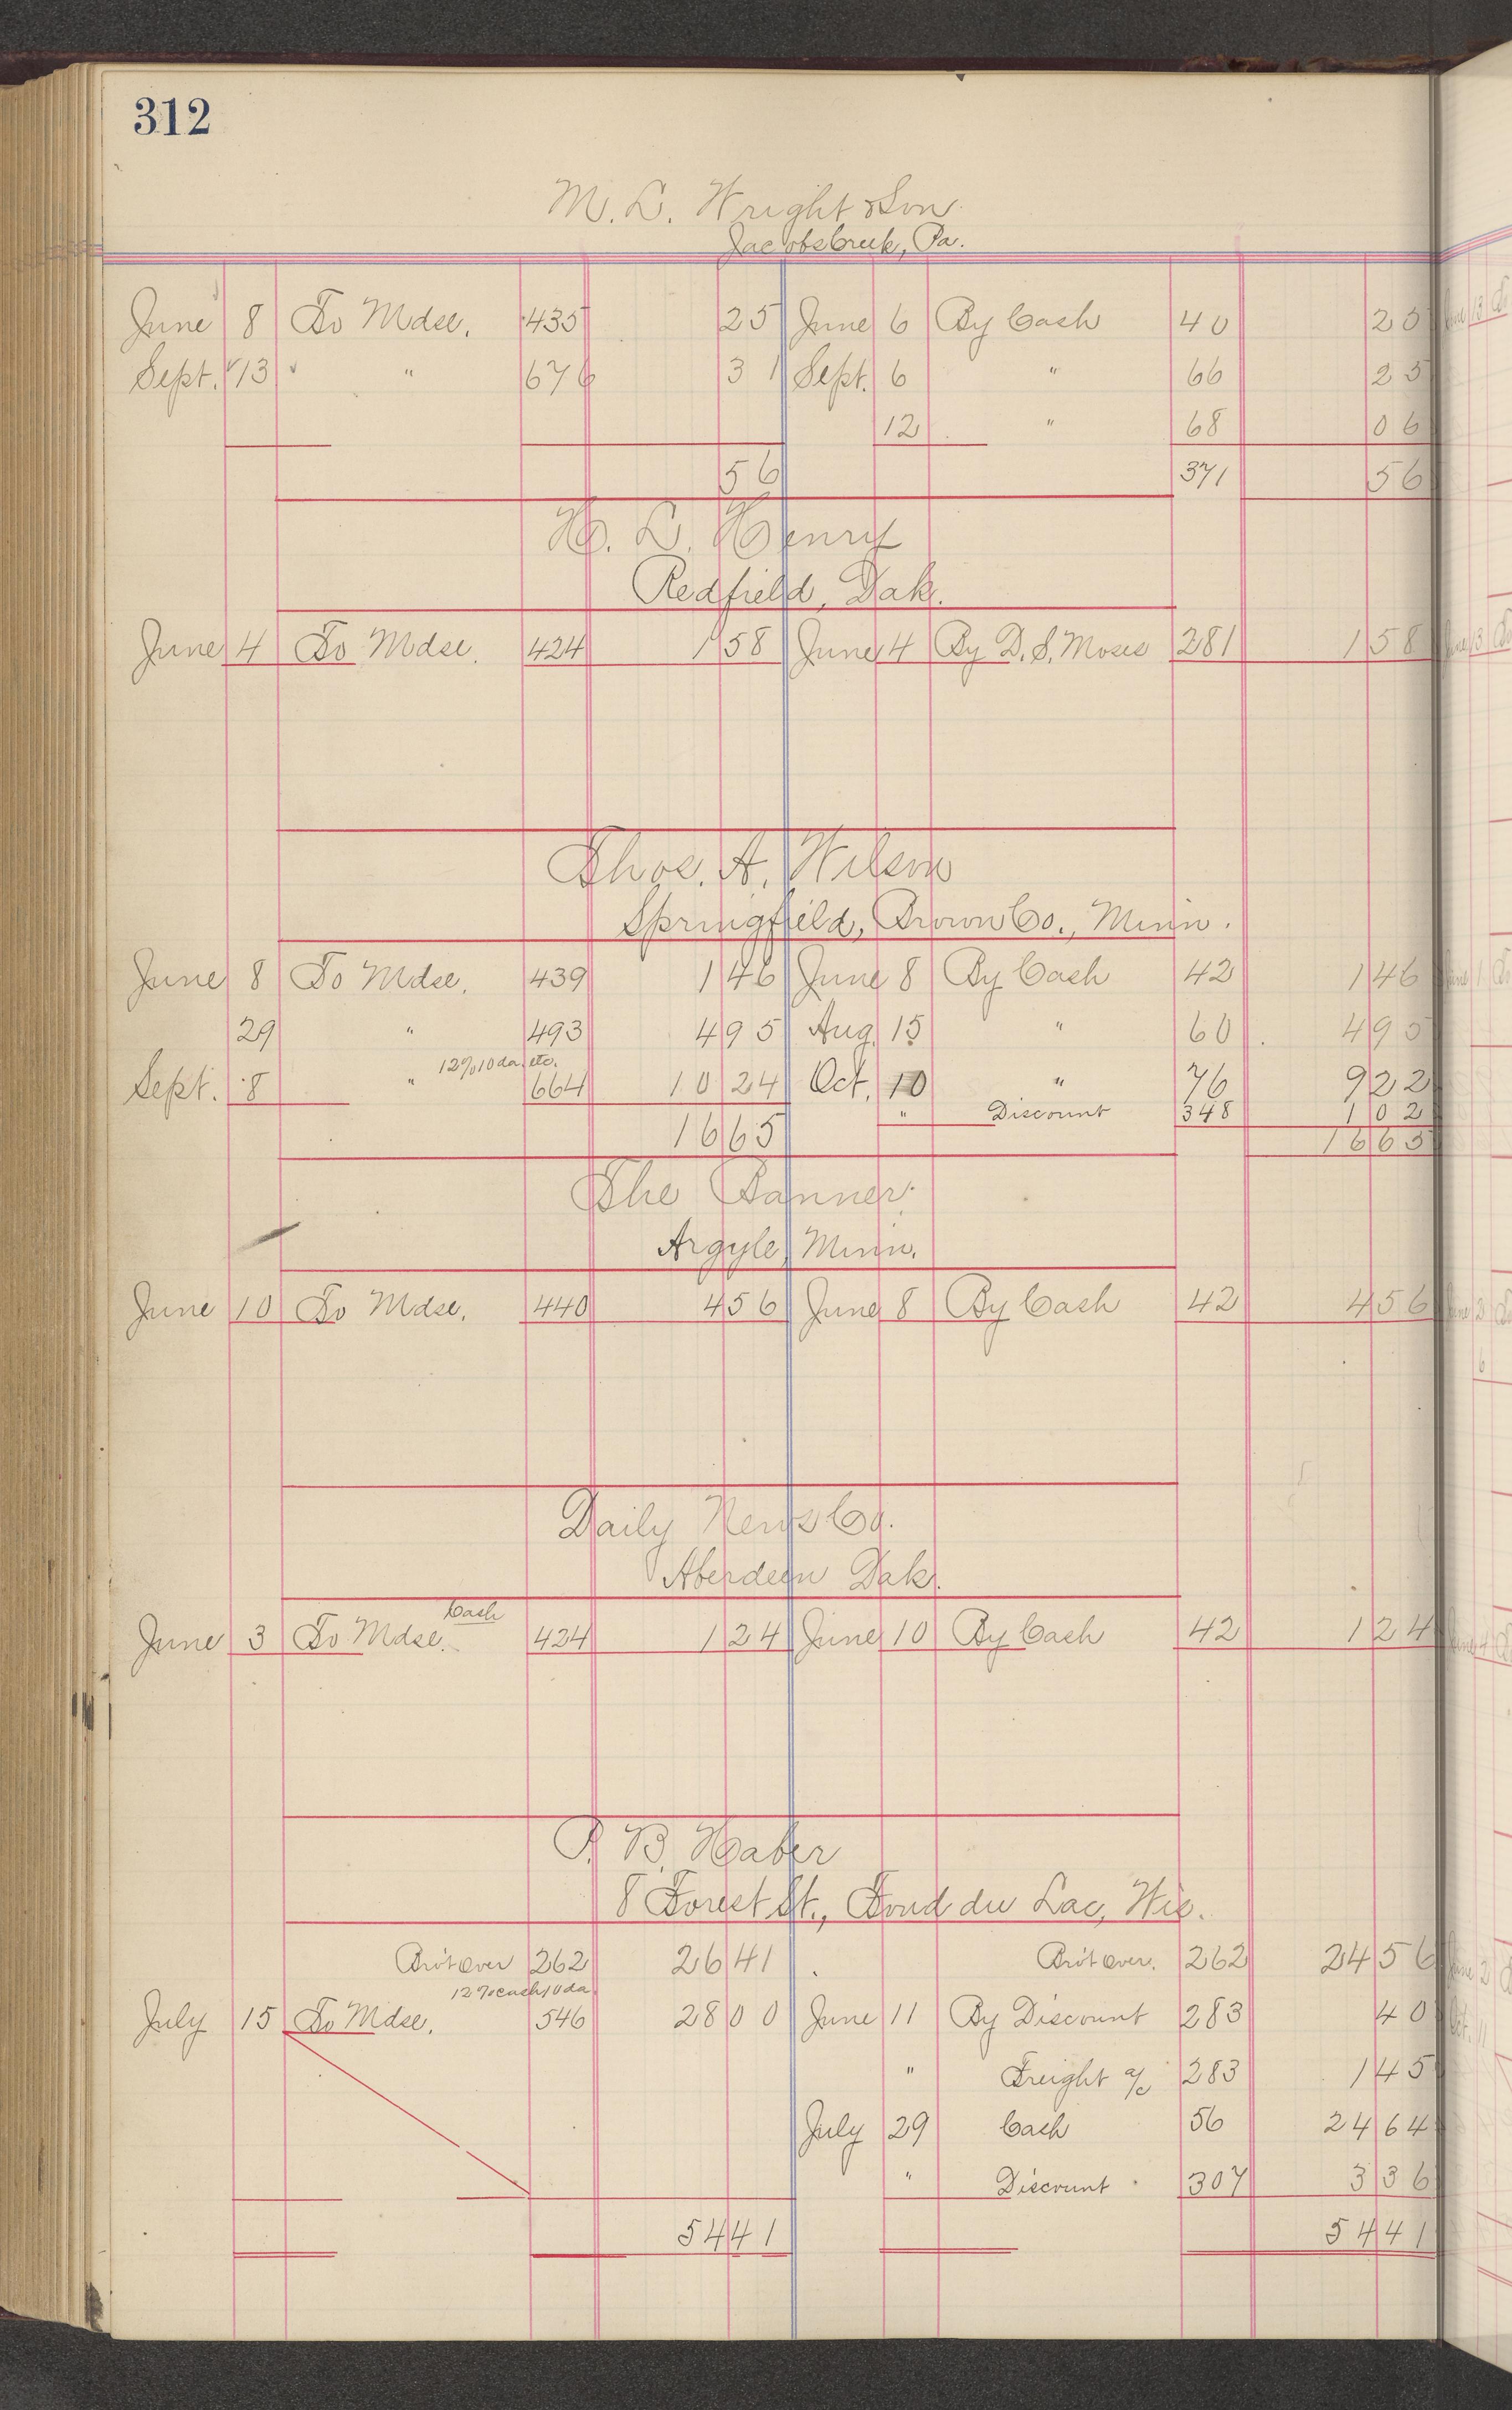 312
M. L. Wright & Son
Jacobs Creek, Pa.
June 8 To Mdse. 435 25 June 6 By Cash 40 25
Sept. 13 " 676 31 Sept. 6 " 66 25
12 " 68 06
56 371 56
H. L. Henry
Redfield, Dak.
June 4 To Mdse. 424 1 58 June 4 By D. S. Moses 281 1 58
Thos. A. Wilson
Springfield, Brown Co., Minn.
June 8 To Mdse. 439 1 46 June 8 By Cash 42 1 46
29 " 493 4 95 Aug. 15 " 60 4 95
12% 10 da. etc.
Sept. 8 " 664 10 24 Oct. 10 " 76 9 22
" Discount 348 1 02
16 65 16 65
The Banner.
Argyle, Minn.
June 10 To Mdse. 440 4 56 June 8 By Cash 42 4 56
Daily News Co.
Aberdeen Dak.
Cash
June 3 To Mdse. 424 1 24 June 10 By Cash 42 1 24
P. B. Haber
8 Forest St., Fond du Lac, Wis.
Bro't Over 262 26 41 Bro't Over. 262 24 56
12% cash 10 da.
July 15 To Mdse. 546 28 00 June 11 By Discount 283 40
" Freight a/c 283 1 45
July 29 Cash 56 24 64
" Discount 307 3 36
54 41 54 41